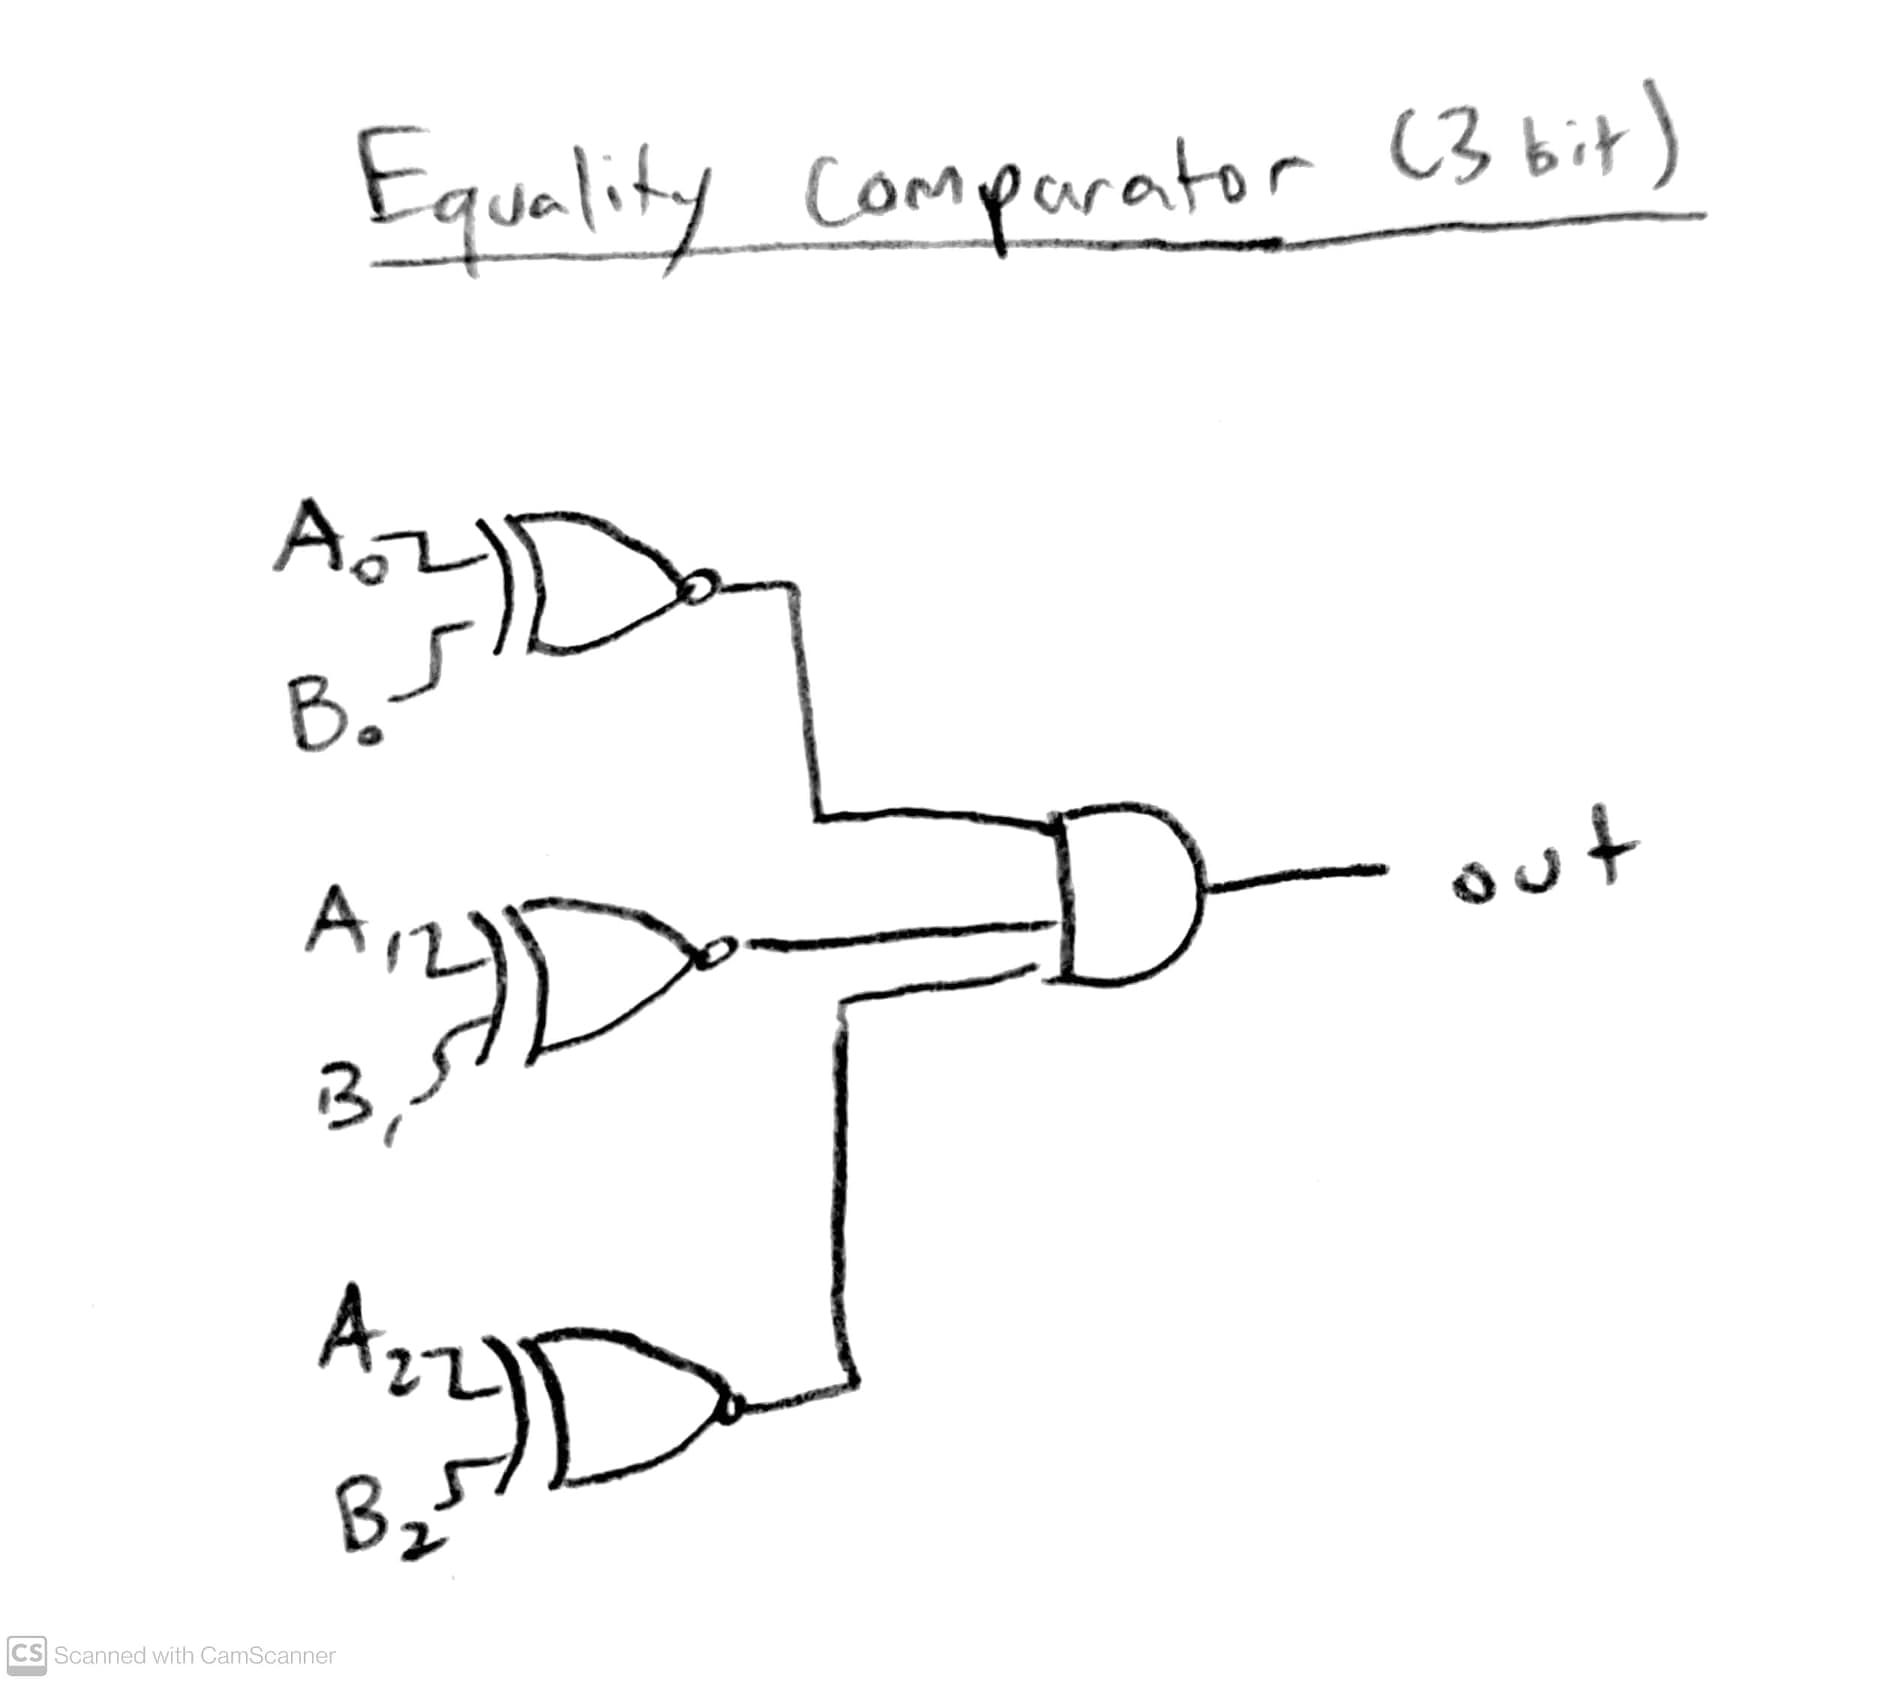 Equality Comparator (3 bit)
A₀
B₀
out
A₁
B₁
A₂
B₂
CS Scanned with CamScanner